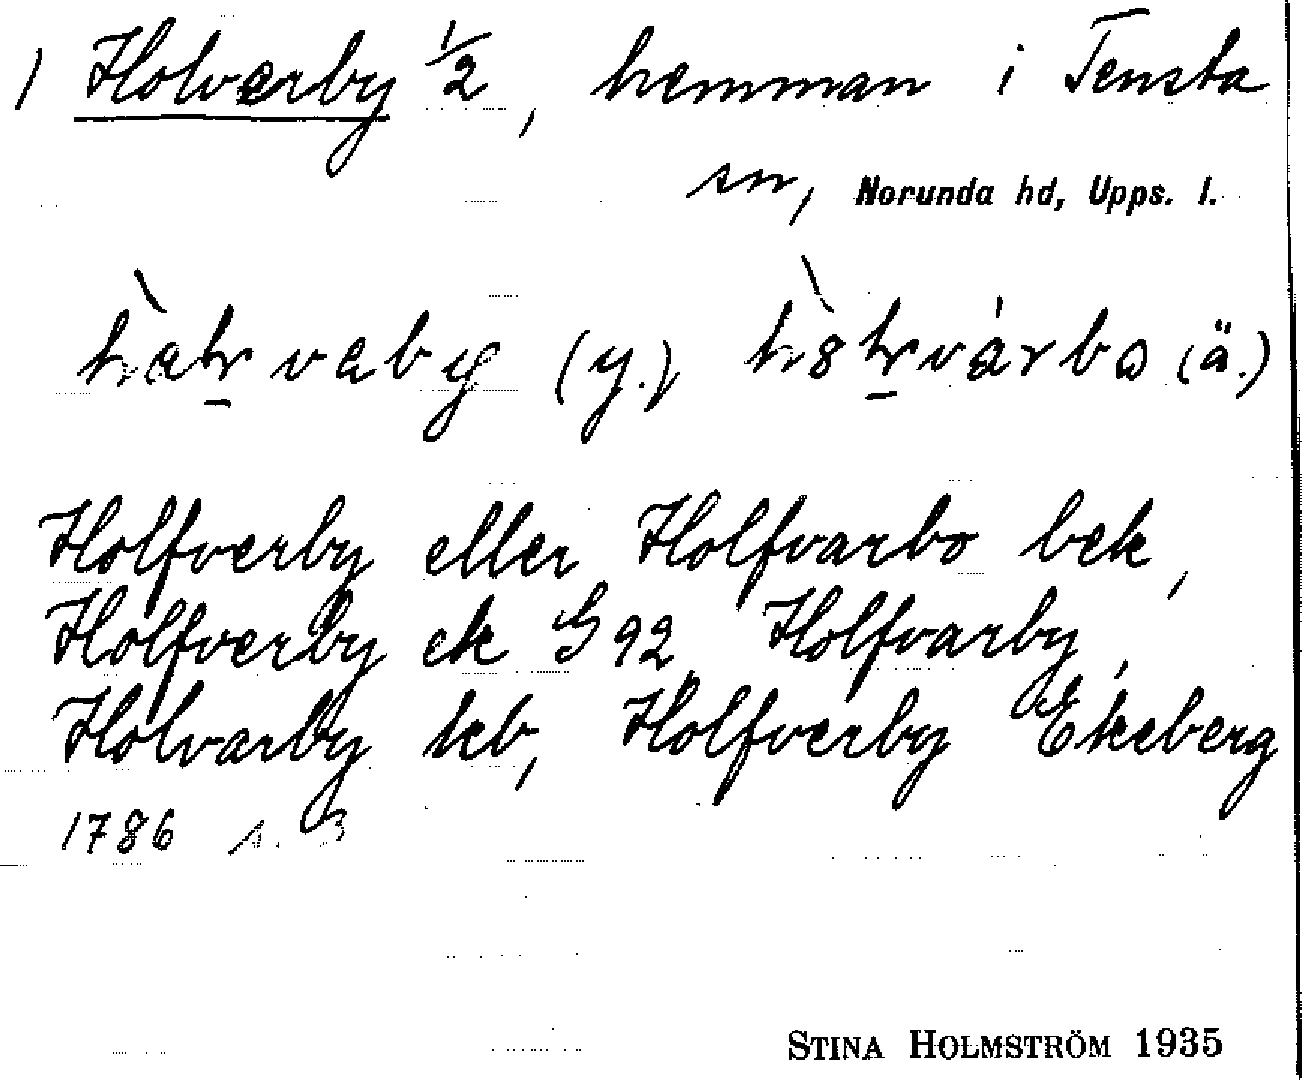 ) Holverby 1/2, hemman i Tensta
sn, Norunda hd, Upps. l.
(y.) (ä.)
Holfverby eller Holfvarbo bek,
Holfverby ek G 92 Holfvarby,
Holvarby kb, Holfverby Ekeberg
1786 s. 3
STINA HOLMSTRÖM 1935